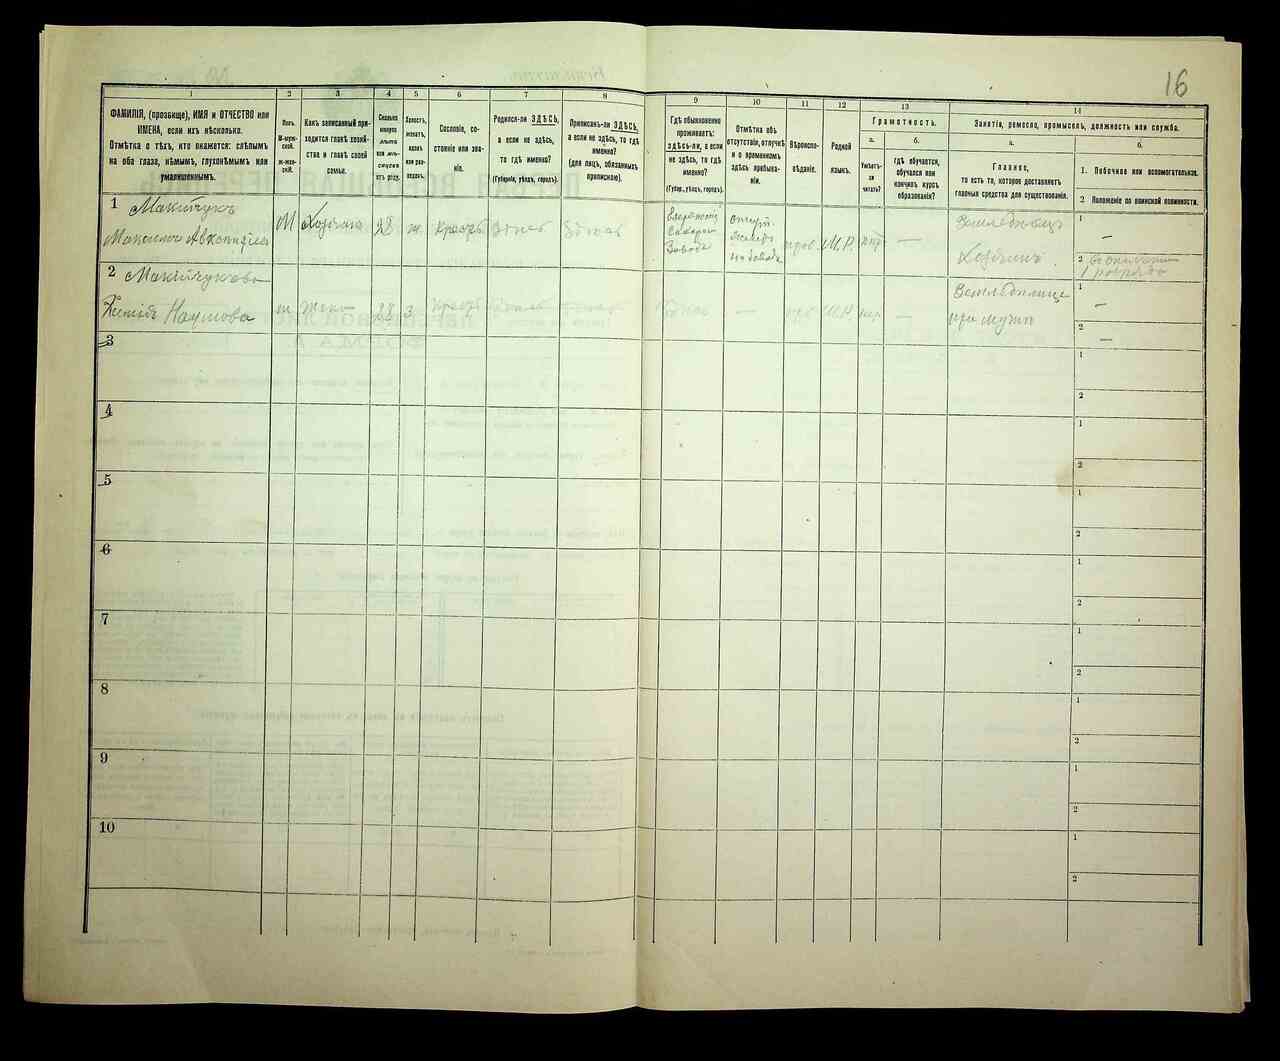 16
1
ФАМИЛІЯ, (прозвище), ИМЯ и ОТЧЕСТВО или
ИМЕНА, если ихъ нѣсколько.
Отмѣтка о тѣхъ, кто окажется: слѣпымъ
на оба глаза, нѣмымъ, глухонѣмымъ или
умалишеннымъ.
2
Полъ.
М-муж-
ской.
Ж-жен-
скій.
3
Какъ записанный при-
ходится главѣ хозяй-
ства и главѣ своей
семьи.
4
Сколько
минуло
лѣтъ
или мѣ-
сяцевъ
отъ роду.
5
Холостъ,
женатъ,
вдовъ
или раз-
веденъ.
6
Сословіе, со-
стояніе или зва-
ніе.
7
Родился-ли ЗДѢСЬ,
а если не здѣсь,
то гдѣ именно?
(Губернія, уѣздъ, городъ).
8
Приписанъ-ли ЗДѢСЬ,
а если не здѣсь, то гдѣ
именно?
(для лицъ, обязанныхъ
припискою).
9
Гдѣ обыкновенно
проживаетъ:
здѣсь-ли, а если
не здѣсь, то гдѣ
именно?
(Губер., уѣздъ, городъ).
10
Отмѣтка объ
отсутствіи, отлучкѣ
и о временномъ
здѣсь пребыва-
ніи.
11
Вѣроиспо-
вѣданіе.
12
Родной
языкъ.
13
Грамотность.
а.
Умѣетъ-
ли
читать?
б.
гдѣ обучается,
обучался или
кончилъ курсъ
образованія?
14
Занятія, ремесло, промыселъ, должность или служба.
а.
Главное,
то есть то, которое доставляетъ
главныя средства для существованія.
б.
1. Побочное или вспомогательное.
2 Положеніе по воинской повинности.
1 Макитчукъ
Максимъ
М Хозяинъ 28 ж. Крест Здѣсь Здѣсь
Сахарн
Заводъ
М.Р. —
Земледѣлецъ
Хозяинъ
1
—
2
1 разряда
2 Макитчукова
Наумова
ж. Жена 28 З. Крест Здѣсь Здѣсь
Здѣсь — М.Р. —
при мужѣ
1
—
2
—
3
1
2
4
1
2
5
1
2
6
1
2
7
1
2
8
1
2
9
1
2
10
1
2